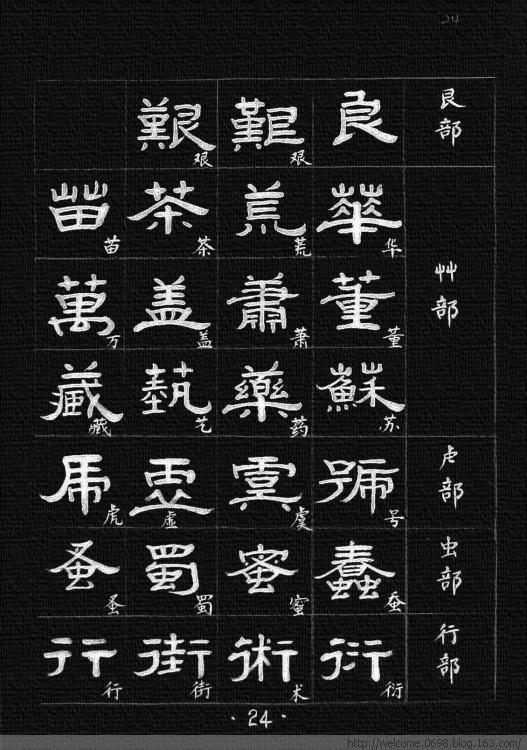 24
艮部
良 艱艰 艱艰
艸部
華华 荒荒 茶茶 苗苗
董董 蕭萧 盖盖 萬万
蘇苏 藥药 蓺艺 藏藏
虍部
號号 虞虞 虛虚 虎虎
虫部
蠢蚕 蜜蜜 蜀蜀 蚤蚤
行部
衍衍 術术 街街 行行
·24·
http://welcome.0698.blog.163.com/